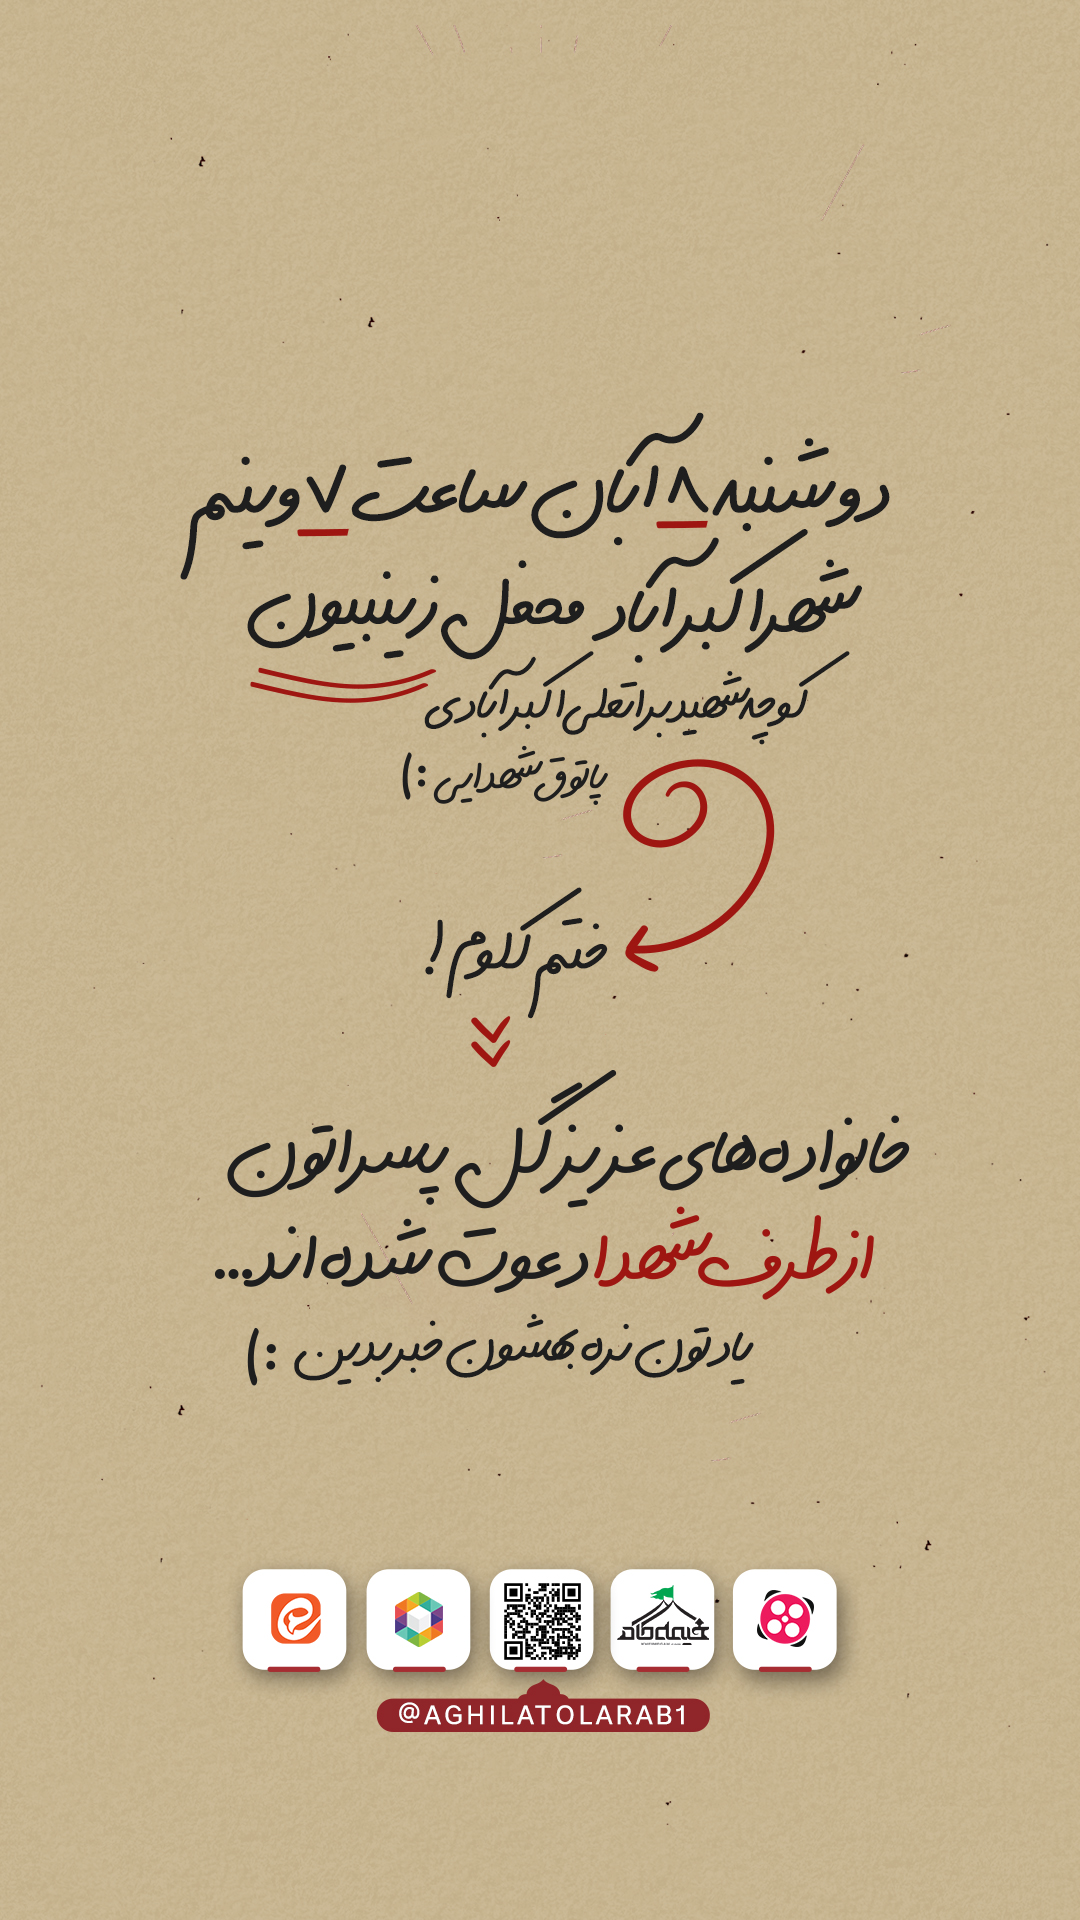 دوشنبه ۸ آبان ساعت ۷ و نیم
شهر اکبرآباد محفل زینبیون
کوچه شهید براتعلی اکبرآبادی
پاتوق شهدایی :)
ختم کلوم!
خانواده های عزیز گل پسراتون
از طرف شهدا دعوت شده اند...
یادتون نره بهشون خبر بدین :)
خیمه گاه
@AGHILATOLARAB1